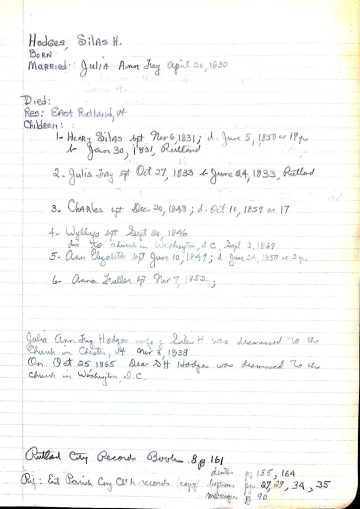 Hodges, Silas H.
Born
Married: Julia Ann Fay April 20, 1830
Died:
Res: East Rutland, Vt
Children:
1- Henry Silas bpt Nov 6, 1831; d. June 5, 1850 ae 19 yr
b Jan 30, 1831, Rutland
2. Julia Fay bpt Oct 27, 1833 b June 24, 1833, Rutland
3. Charles bpt Dec 20, 1843; d. Oct 10, 1859 ae 17
4- Wyllys bpt Sept 20, 1846
dis to church in Washington, D.C. Sept 3, 1869
5- Ann Elizabeth bpt June 10, 1849; d June 24, 1850 ae 2 yr
6- Anna Fuller bpt Nov 7, 1852;
Julia Ann Fay Hodges wife of Silas H was dismissed to the
Church in Chester, Vt. Nov 3, 1838
On Oct 25 1865 Dea S H Hodges was dismissed to the
church in Washington, D.C.
Rutland City Records Book 8 pg 161
deaths pg 155, 164
Ref: East Parish Cong Chh records (copy) baptisms pgs 27, 29, 34, 35
marriages pg 90